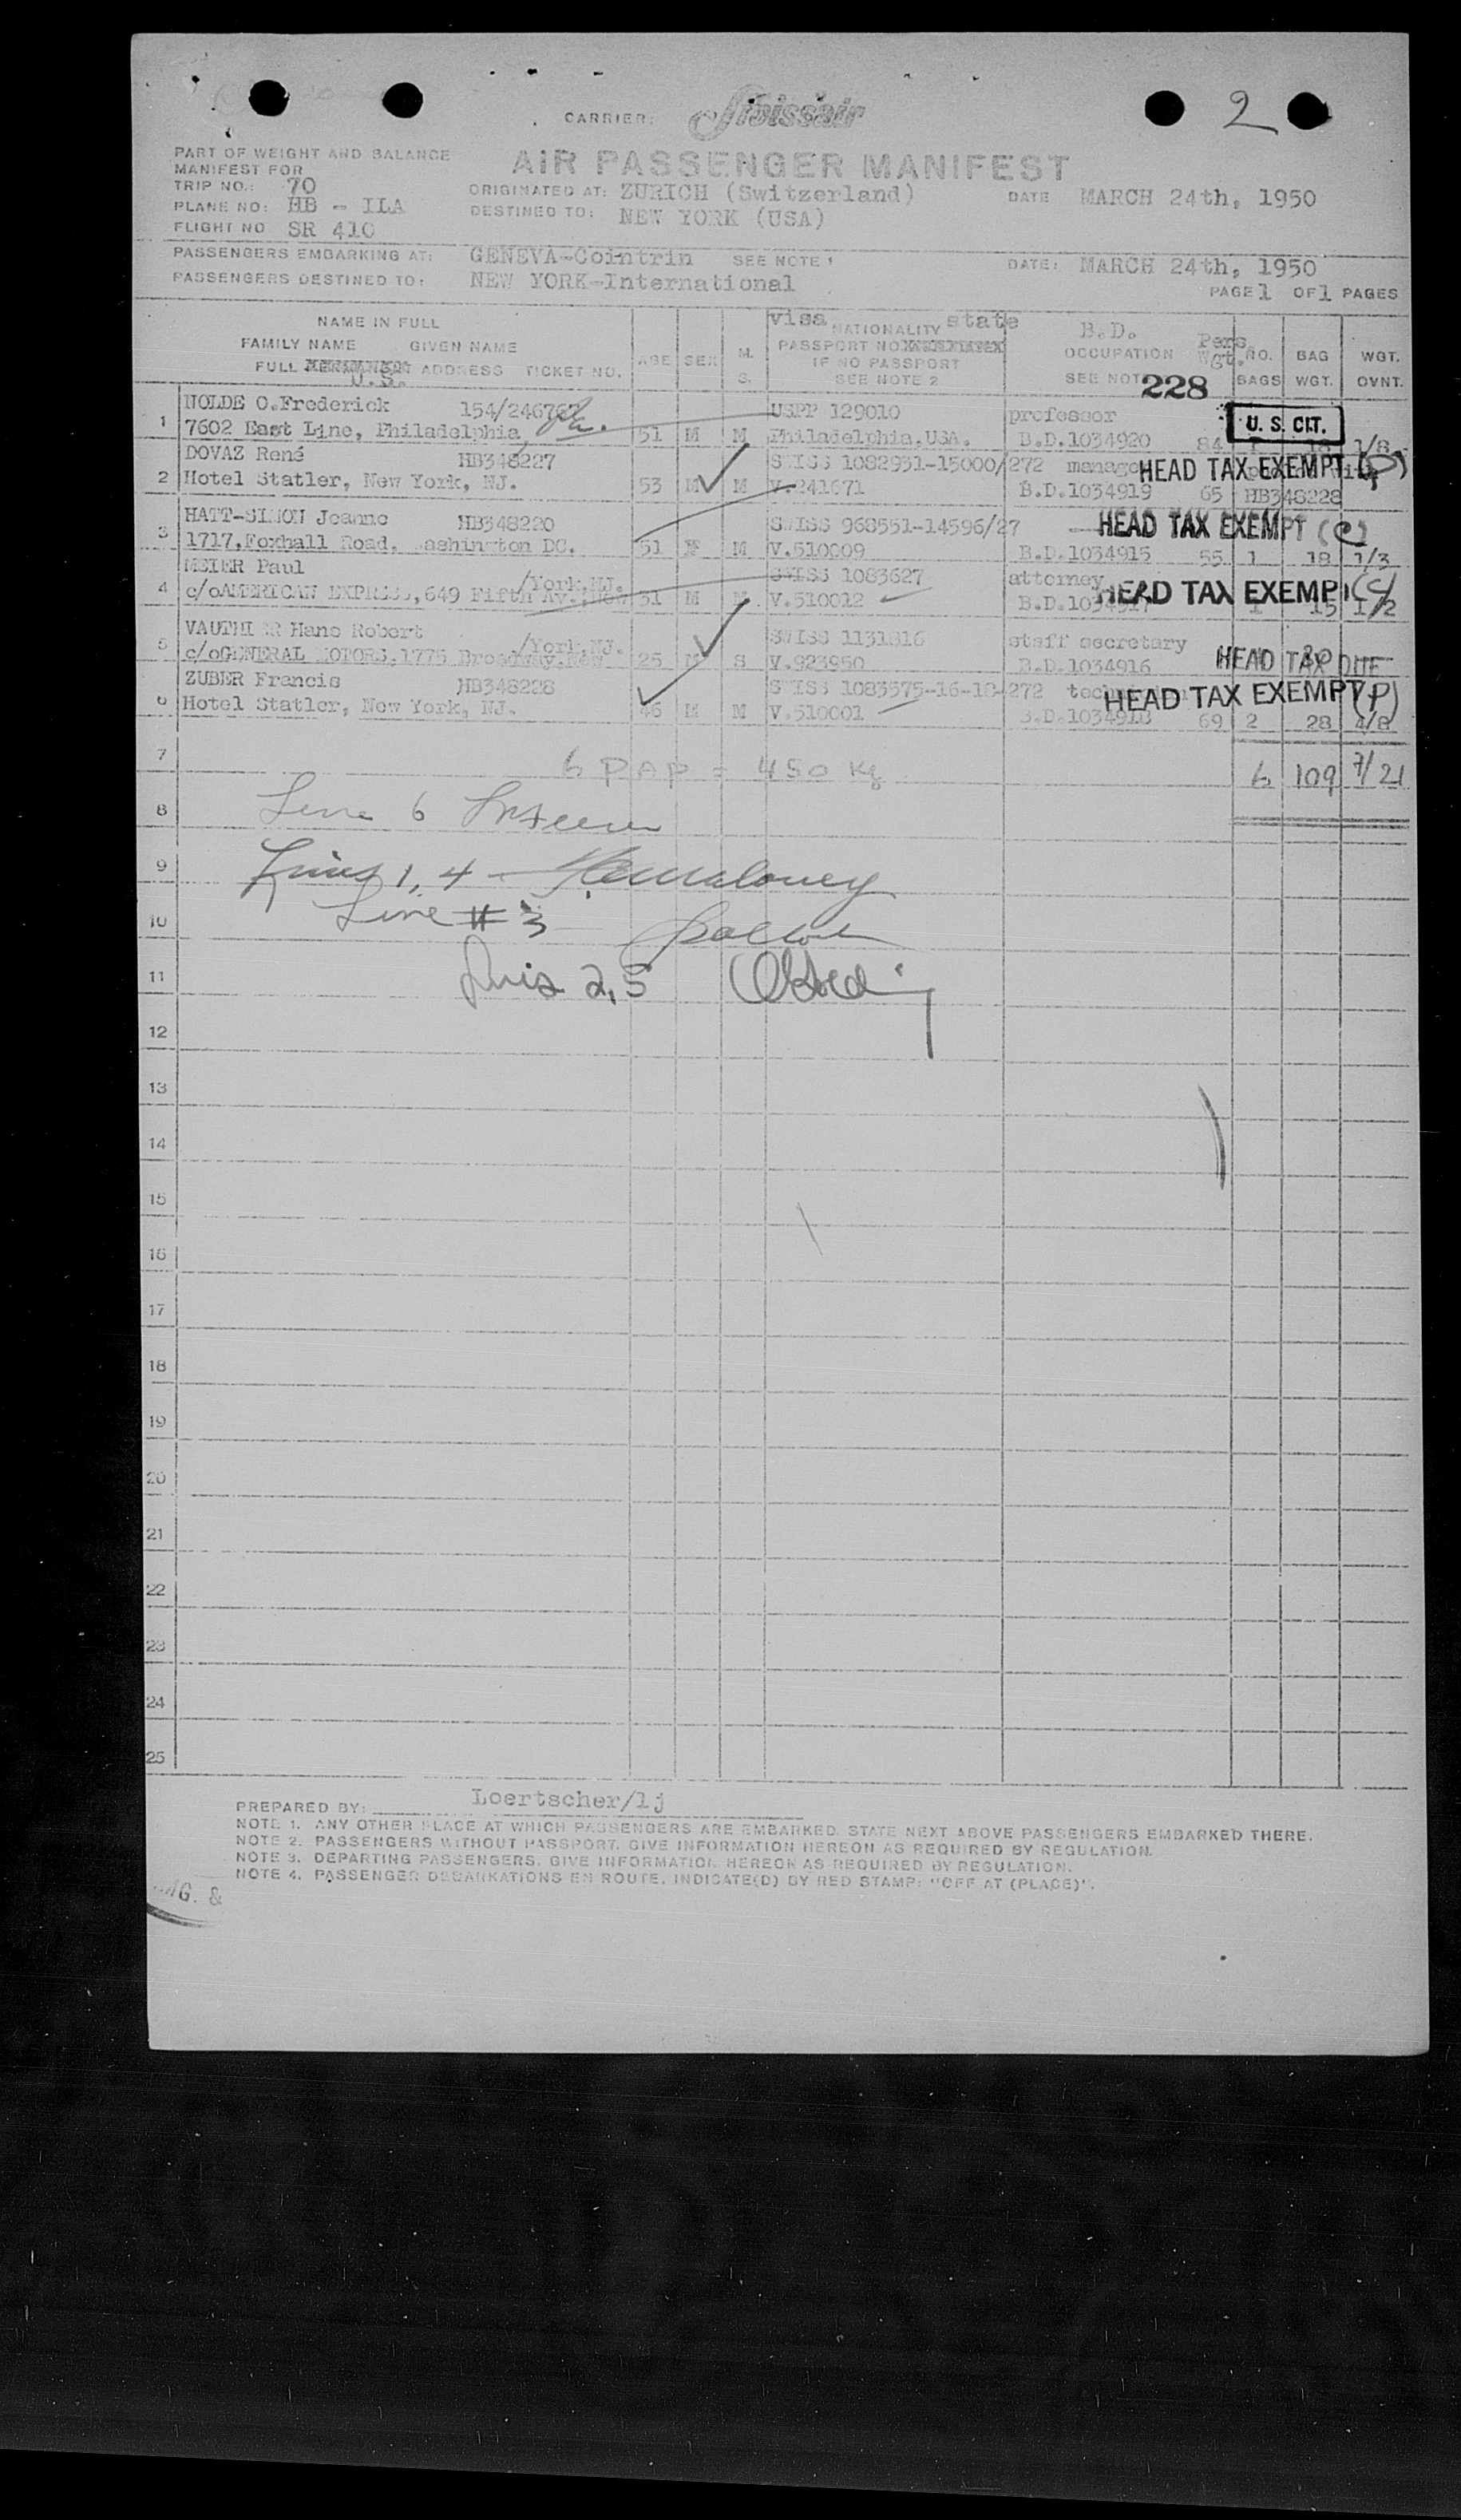 2
CARRIER: Swissair
PART OF WEIGHT AND BALANCE
MANIFEST FOR
AIR PASSENGER MANIFEST
TRIP NO.: 70
ORIGINATED AT: ZURICH (Switzerland) DATE MARCH 24th, 1950
PLANE NO: HB - ILA
DESTINED TO: NEW YORK (USA)
FLIGHT NO SR 410
PASSENGERS EMBARKING AT: GENEVA-Cointrin SEE NOTE 1 DATE: MARCH 24th, 1950
PASSENGERS DESTINED TO: NEW YORK-International
PAGE 1 OF 1 PAGES
NAME IN FULL
FAMILY NAME GIVEN NAME
FULL ADDRESS TICKET NO.
U.S.
AGE SEX M. S.
visa NATIONALITY state
PASSPORT NO
IF NO PASSPORT
SEE NOTE 2
B.D.
OCCUPATION
SEE NOTE
Pers. Wgt.
NO. BAGS
BAG WGT.
WGT. OVNT.
228
1 NOLDE O.Frederick 154/246767 USPP 129010 professor U. S. CIT.
7602 East Line, Philadelphia, 51 M M Philadelphia,USA. B.D.1034920 84 1 18 1/8
2 DOVAZ René HB348227 SWISS 1082951-15000/272 HEAD TAX EXEMPT (P)
Hotel Statler, New York, NJ. 53 M M V.241671 B.D.1034919 65 HB348228
3 HATT-SIMON Jeanne HB348220 SWISS 968551-14596/27 HEAD TAX EXEMPT (C)
1717,Foxhall Road, Washington DC. 51 F M V.510009 B.D.1034915 55 1 18 1/3
4 MEIER Paul /York,NJ. SWISS 1083627 attorney HEAD TAX EXEMPT (C)
c/oAMERICAN EXPRESS,649 Fifth Av.,New 51 M M V.510012 1 15 1/2
5 VAUTHIER Hans Robert /York,NJ. SWISS 1131816 staff secretary
c/oGENERAL MOTORS,1775 Broadway,New 25 M S V.923950 B.D.1034916 HEAD TAX DUE
6 ZUBER Francis HB348228 SWISS 1083575-16-18-272 HEAD TAX EXEMPT (P)
Hotel Statler, New York, NJ. 46 M M V.510001 B.D.1034918 69 2 28 4/8
7 6 PAP = 450 Kg 6 109 7/21
8 Line 6
9 Lines 1, 4 - Maloney
10 Line # 3
11 Lines 2, 5
12
13
14
15
16
17
18
19
20
21
22
23
24
25
PREPARED BY: Loertscher/lj
NOTE 1. ANY OTHER PLACE AT WHICH PASSENGERS ARE EMBARKED, STATE NEXT ABOVE PASSENGERS EMBARKED THERE.
NOTE 2. PASSENGERS WITHOUT PASSPORT, GIVE INFORMATION HEREON AS REQUIRED BY REGULATION.
NOTE 3. DEPARTING PASSENGERS, GIVE INFORMATION HEREON AS REQUIRED BY REGULATION.
NOTE 4. PASSENGER DEBARKATIONS EN ROUTE, INDICATE(D) BY RED STAMP: "OFF AT (PLACE)".